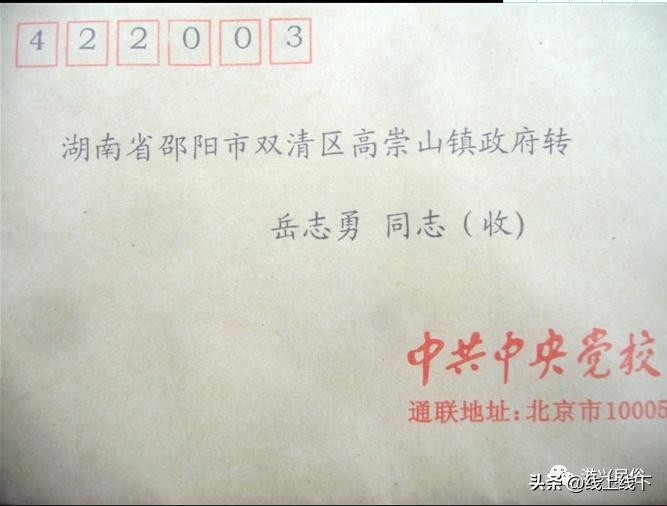 422003
湖南省邵阳市双清区高崇山镇政府转
岳志勇 同志(收)
中共中央党校
通联地址:北京市10005
游兴民俗
头条@线上线下